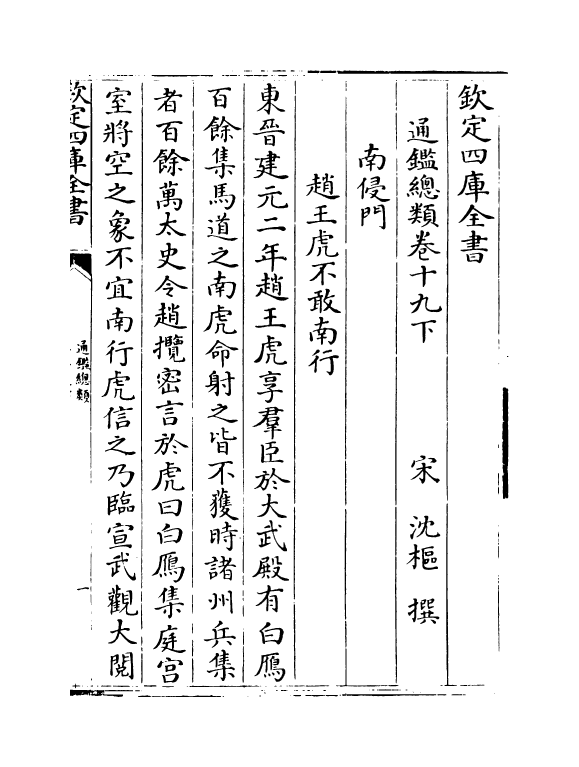 欽定四庫全書
通鑑總類卷十九下
宋 沈樞 撰
南侵門
趙王虎不敢南行
東晉建元二年趙王虎享羣臣於大武殿有白鴈
百餘集馬道之南虎命射之皆不獲時諸州兵集
者百餘萬太史令趙攬密言於虎曰白鴈集庭宫
室將空之象不宜南行虎信之乃臨宣武觀大閱
欽定四庫全書
通鑑總類
一